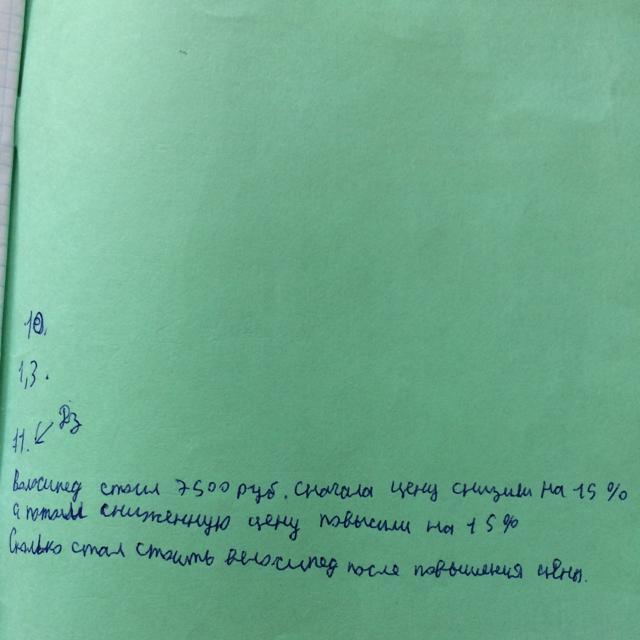 10.
1,3.
Дз
11.
Велосипед стоил 7500 руб. Сначала цену снизили на 15%
а потом сниженную цену повысили на 15%
Сколько стал стоить велосипед после повышения цены.